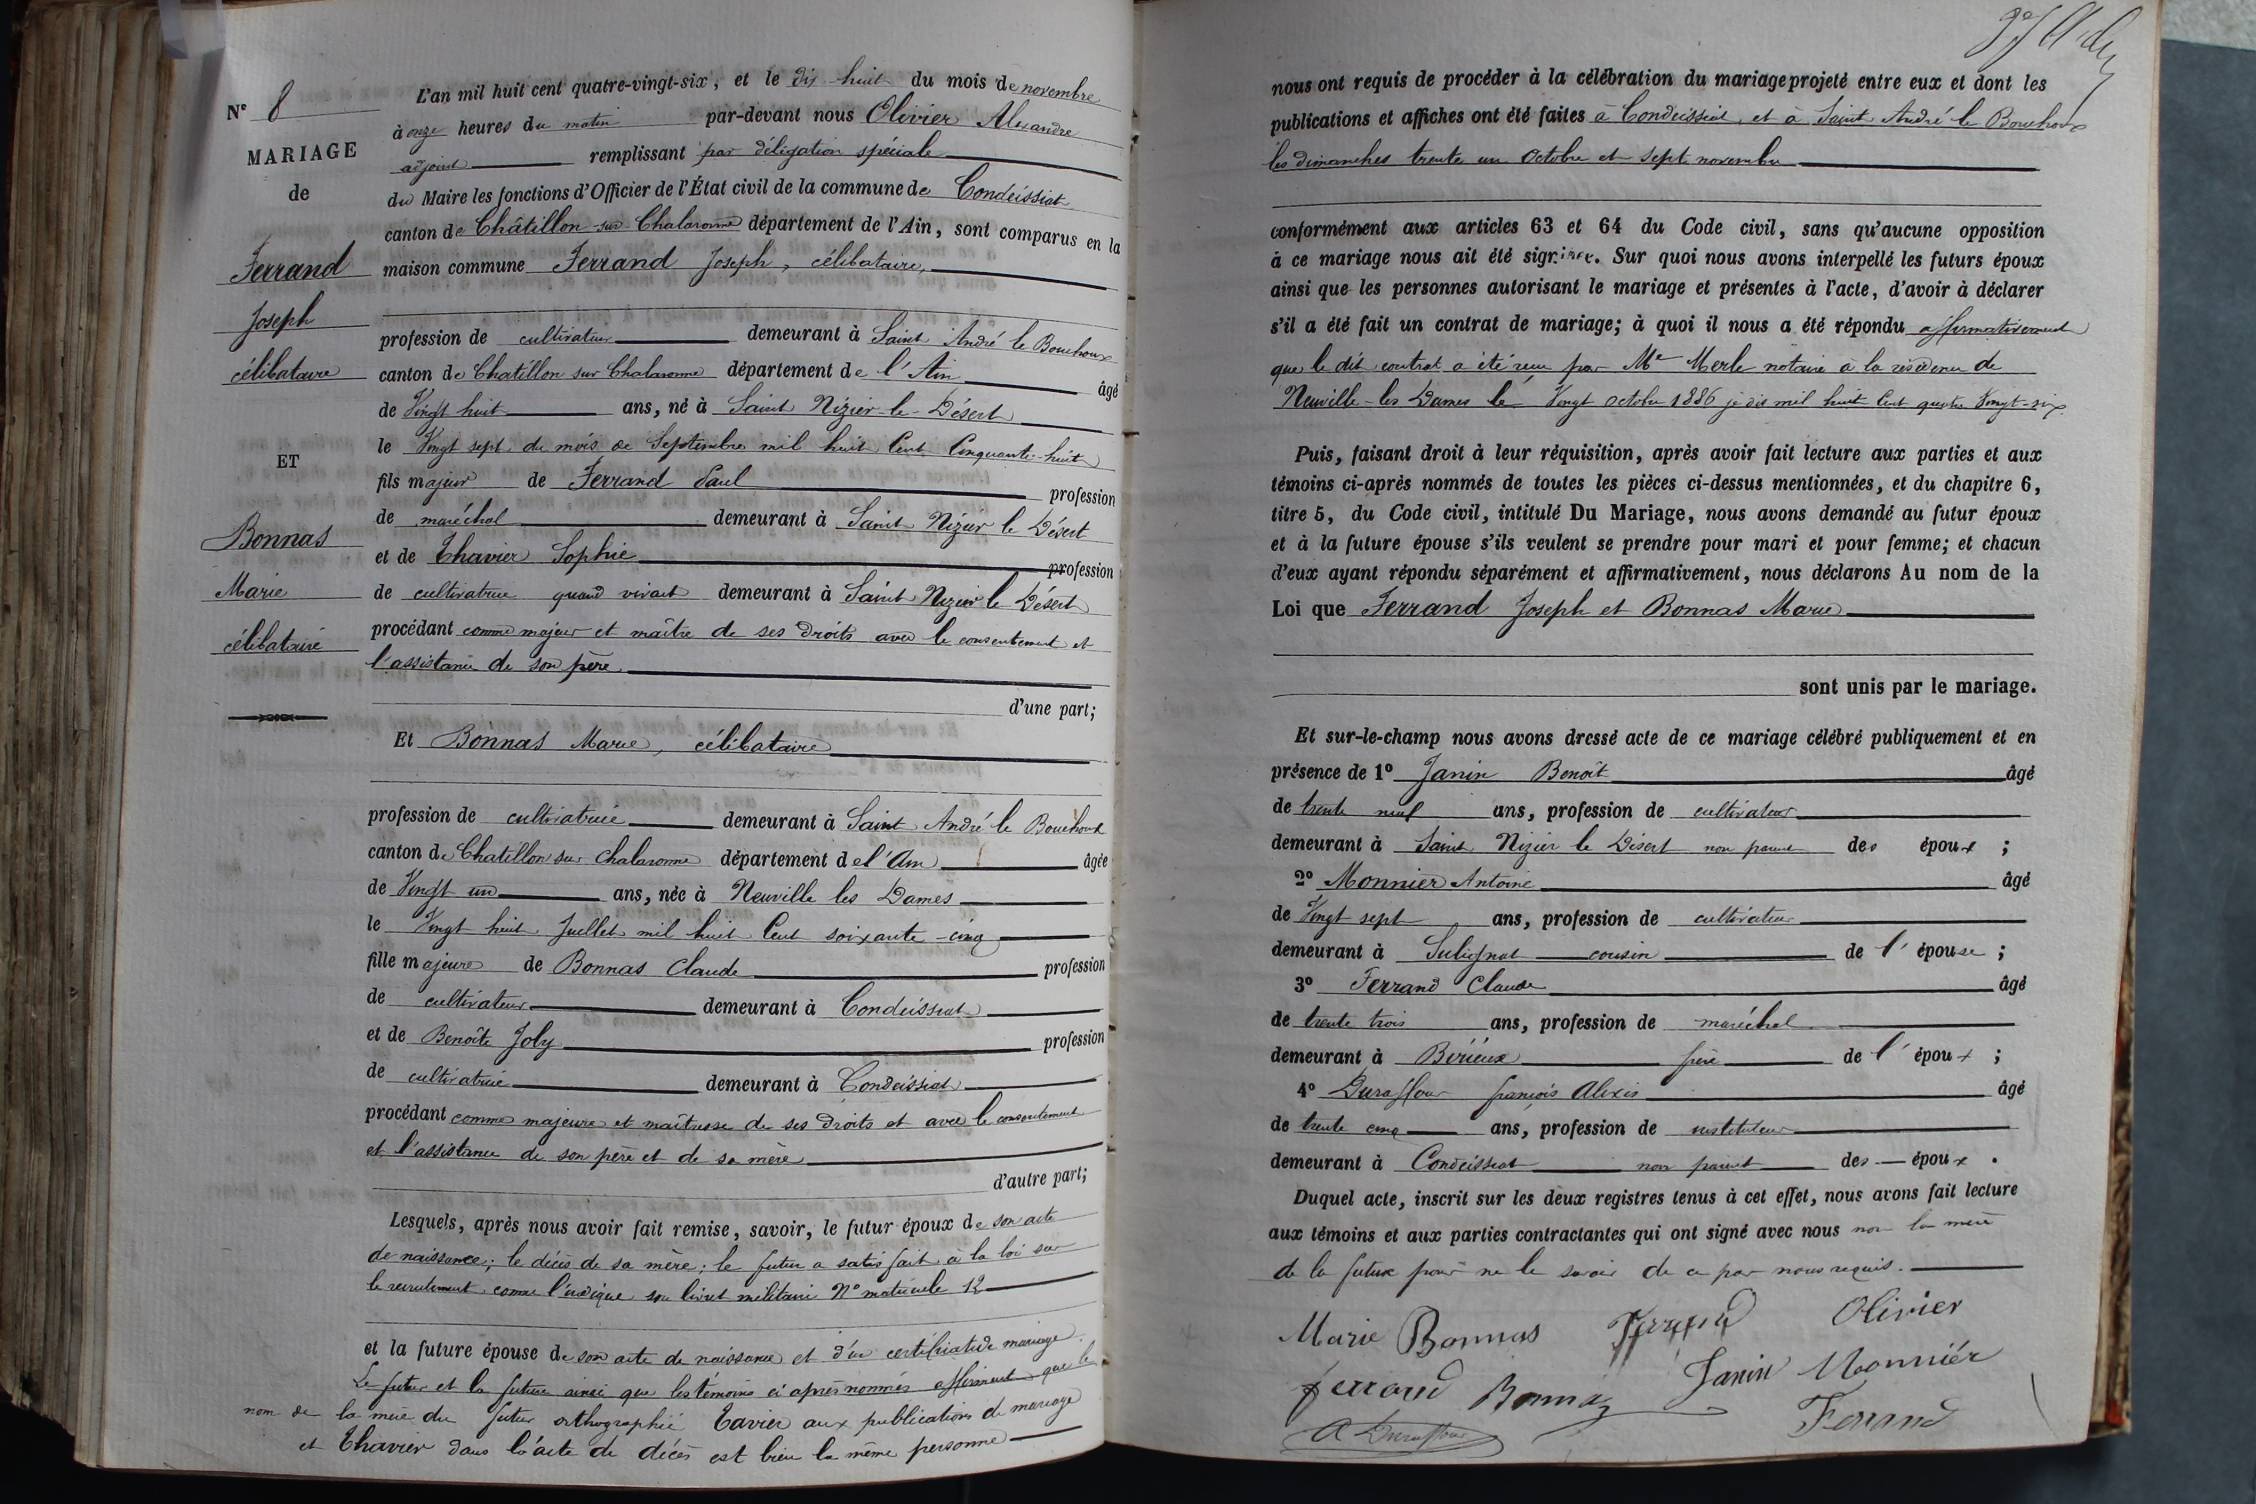 N° 8
MARIAGE
de
Ferrand
Joseph
célibataire
ET
Bonnas
Marie
célibataire
L'an mil huit cent quatre-vingt-six, et le dix huit du mois de novembre
à onze heures du matin par-devant nous Olivier Alexandre
adjoint remplissant par délégation spéciale
du Maire les fonctions d'Officier de l'État civil de la commune de Condeissiat
canton de Châtillon-sur-Chalaronne département de l'Ain, sont comparus en la
maison commune Ferrand Joseph, célibataire,
profession de cultivateur demeurant à Saint André le Bouchoux
canton de Chatillon sur Chalaronne département de l'Ain âgé
de Vingt huit ans, né à Saint Nizier-le-Désert
le Vingt sept du mois de Septembre mil huit Cent Cinquante-huit
fils majeur de Ferrand Paul profession
de maréchal demeurant à Saint Nizier le Désert
et de Thavier Sophie profession
de cultivatrice quand vivait demeurant à Saint Nizier le Désert
procédant comme majeur et maître de ses droits avec le consentement et
l'assistance de son père
d'une part;
Et Bonnas Marie, célibataire
profession de cultivatrice demeurant à Saint André le Bouchoux
canton de Chatillon sur Chalaronne département de l'Ain âgée
de Vingt un ans, née à Neuville les Dames
le Vingt huit Juillet mil huit Cent soixante-cinq
fille majeure de Bonnas Claude profession
de cultivateur demeurant à Condeissiat
et de Benoîte Joly profession
de cultivatrice demeurant à Condeissiat
procédant comme majeure et maîtresse de ses droits et avec le consentement
et l'assistance de son père et de sa mère
d'autre part;
Lesquels, après nous avoir fait remise, savoir, le futur époux de son acte
de naissance; le décès de sa mère; le futur a satisfait à la loi sur
le recrutement comme l'indique son livret militaire N° matricule 12
et la future épouse de son acte de naissance et d'un certificat de mariage.
Le futur et la future ainsi que les témoins ci après nommés affirment que le
nom de la mère du futur orthographié Tavier aux publications de mariage
et Thavier dans l'acte de décès est bien la même personne
nous ont requis de procéder à la célébration du mariage projeté entre eux et dont les
publications et affiches ont été faites à Condeissiat et à Saint André le Bouchoux
les dimanches trente un Octobre et sept novembre
conformément aux articles 63 et 64 du Code civil, sans qu'aucune opposition
à ce mariage nous ait été signifiée. Sur quoi nous avons interpellé les futurs époux
ainsi que les personnes autorisant le mariage et présentes à l'acte, d'avoir à déclarer
s'il a été fait un contrat de mariage; à quoi il nous a été répondu affirmativement
que le dit contrat a été reçu par Me Merle notaire à la résidence de
Neuville-les Dames le Vingt octobre 1886 je dis mil huit Cent quatre Vingt-six
Puis, faisant droit à leur réquisition, après avoir fait lecture aux parties et aux
témoins ci-après nommés de toutes les pièces ci-dessus mentionnées, et du chapitre 6,
titre 5, du Code civil, intitulé Du Mariage, nous avons demandé au futur époux
et à la future épouse s'ils veulent se prendre pour mari et pour femme; et chacun
d'eux ayant répondu séparément et affirmativement, nous déclarons Au nom de la
Loi que Ferrand Joseph et Bonnas Marie
sont unis par le mariage.
Et sur-le-champ nous avons dressé acte de ce mariage célébré publiquement et en
présence de 1° Janin Benoît âgé
de trente neuf ans, profession de cultivateur
demeurant à Saint Nizier le Désert non parent des époux;
2° Monnier Antoine âgé
de Vingt sept ans, profession de cultivateur
demeurant à Sulignat cousin de l'épouse;
3° Ferrand Claude âgé
de trente trois ans, profession de maréchal
demeurant à Birieux frère de l'époux;
4° Duraffour françois Alexis âgé
de trente cinq ans, profession de instituteur
demeurant à Condeissiat non parent des époux.
Duquel acte, inscrit sur les deux registres tenus à cet effet, nous avons fait lecture
aux témoins et aux parties contractantes qui ont signé avec nous non la mère
de la future pour ne le savoir de ce par nous requis.
Marie Bonnas Ferrand Olivier
ferrand Bonnas Janin Monnier
A Duraffour Ferrand